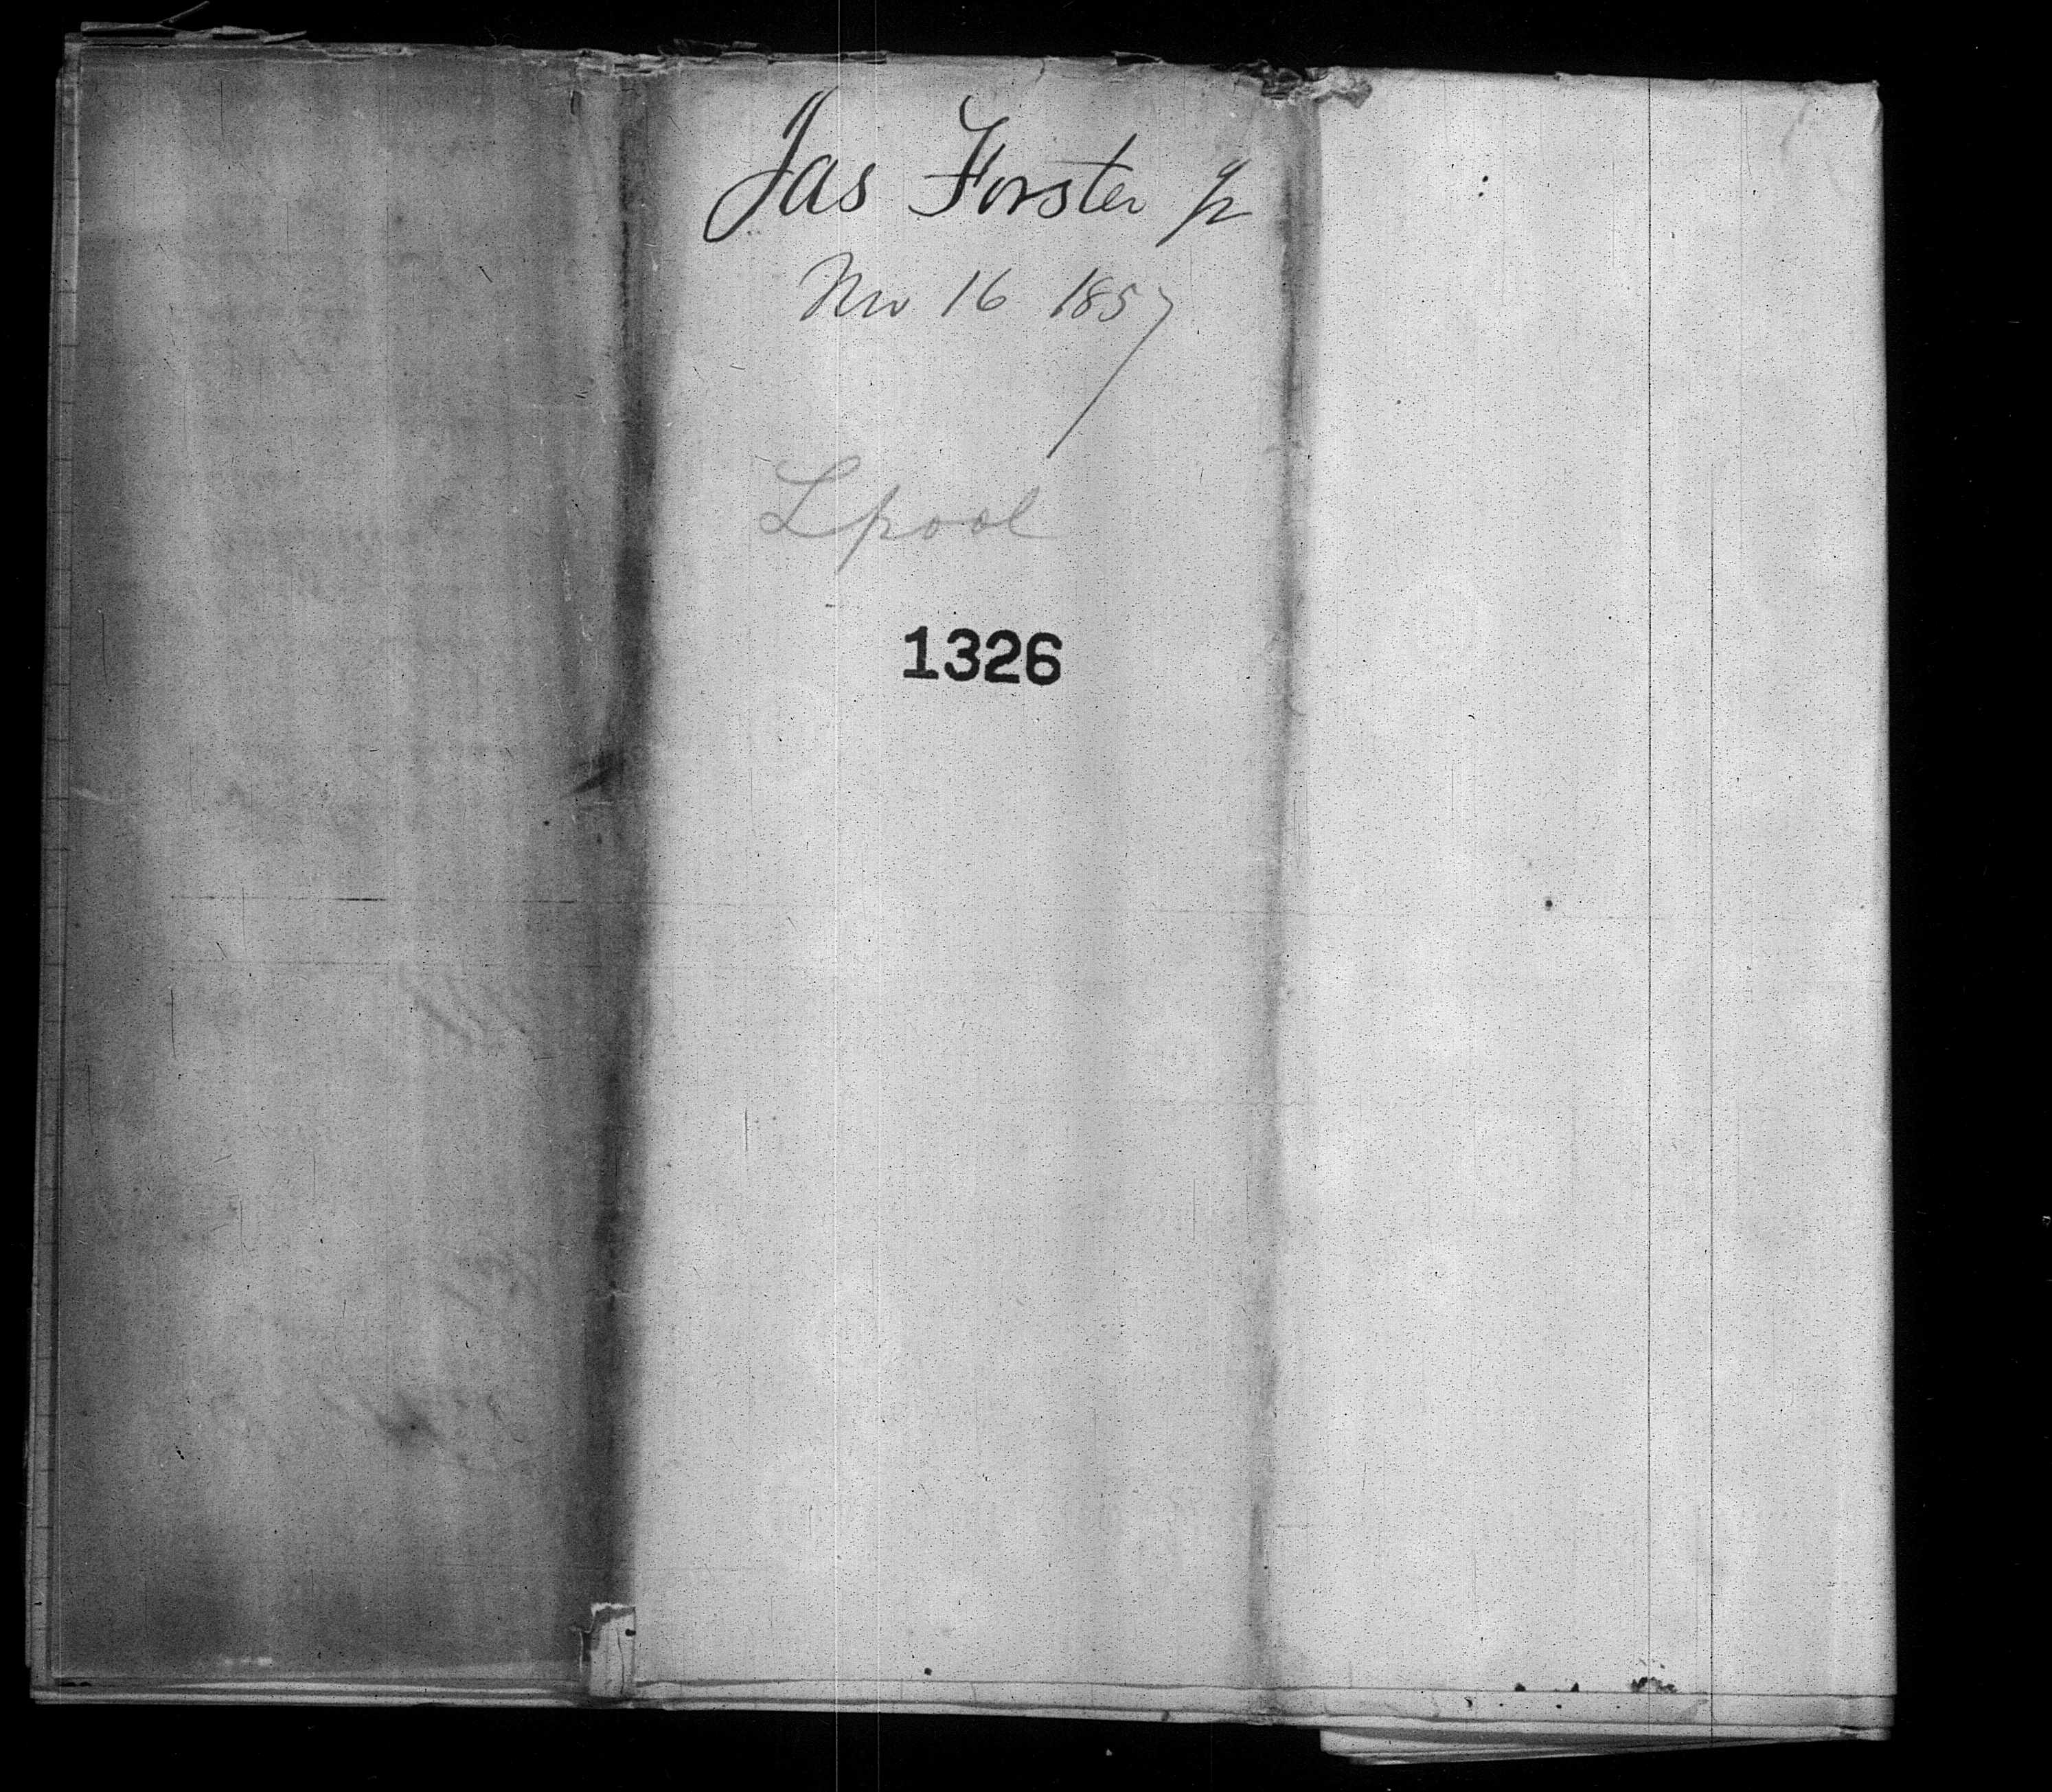 Jas Forster Jr
Nov 16 1857
Lpool
1326